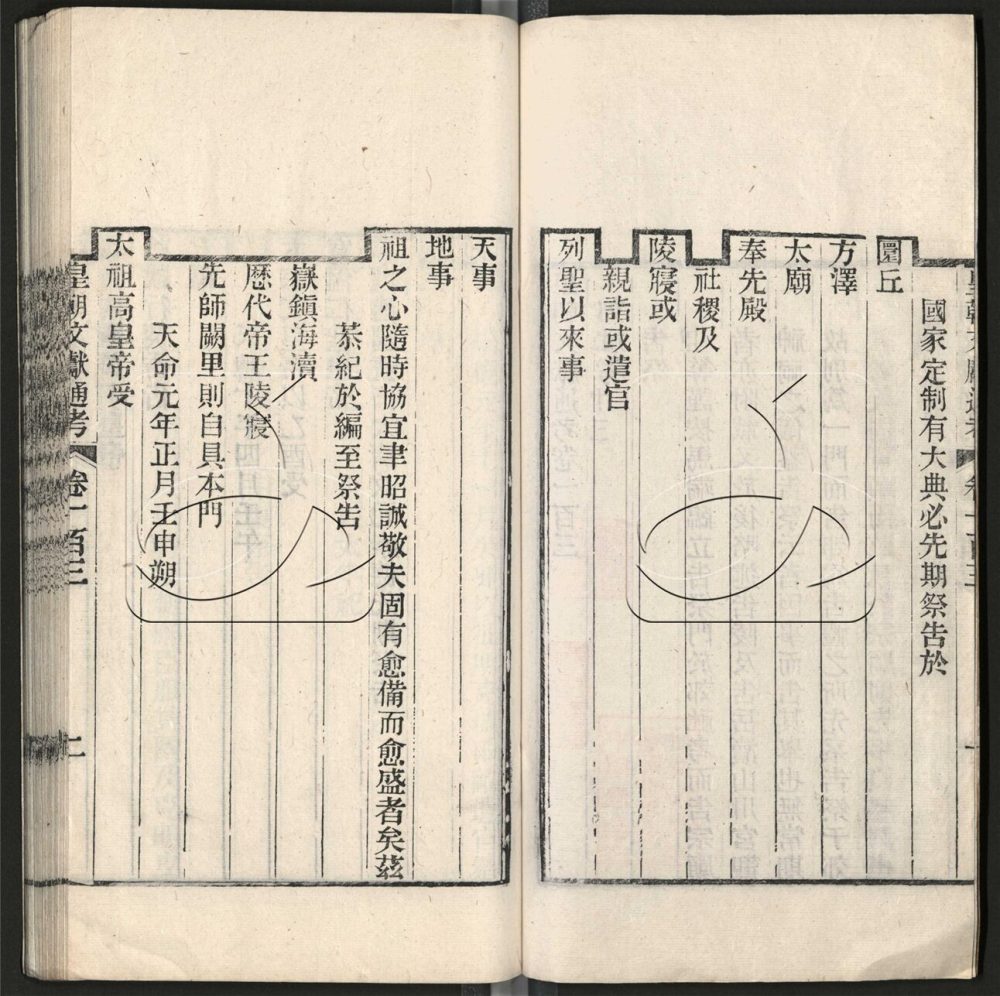 國家定制有大典必先期祭告於
圜丘
方澤
太廟
奉先殿
社稷及
陵寢或
親詣或遣官
列聖以來事
天事
地事
祖之心隨時協宜聿昭誠敬夫固有愈備而愈盛者矣茲
恭紀於編至祭告
嶽鎭海瀆
歷代帝王陵寢
先師闕里則自具本門
天命元年正月壬申朔
太祖高皇帝受
皇朝文獻通考 卷一百三 二